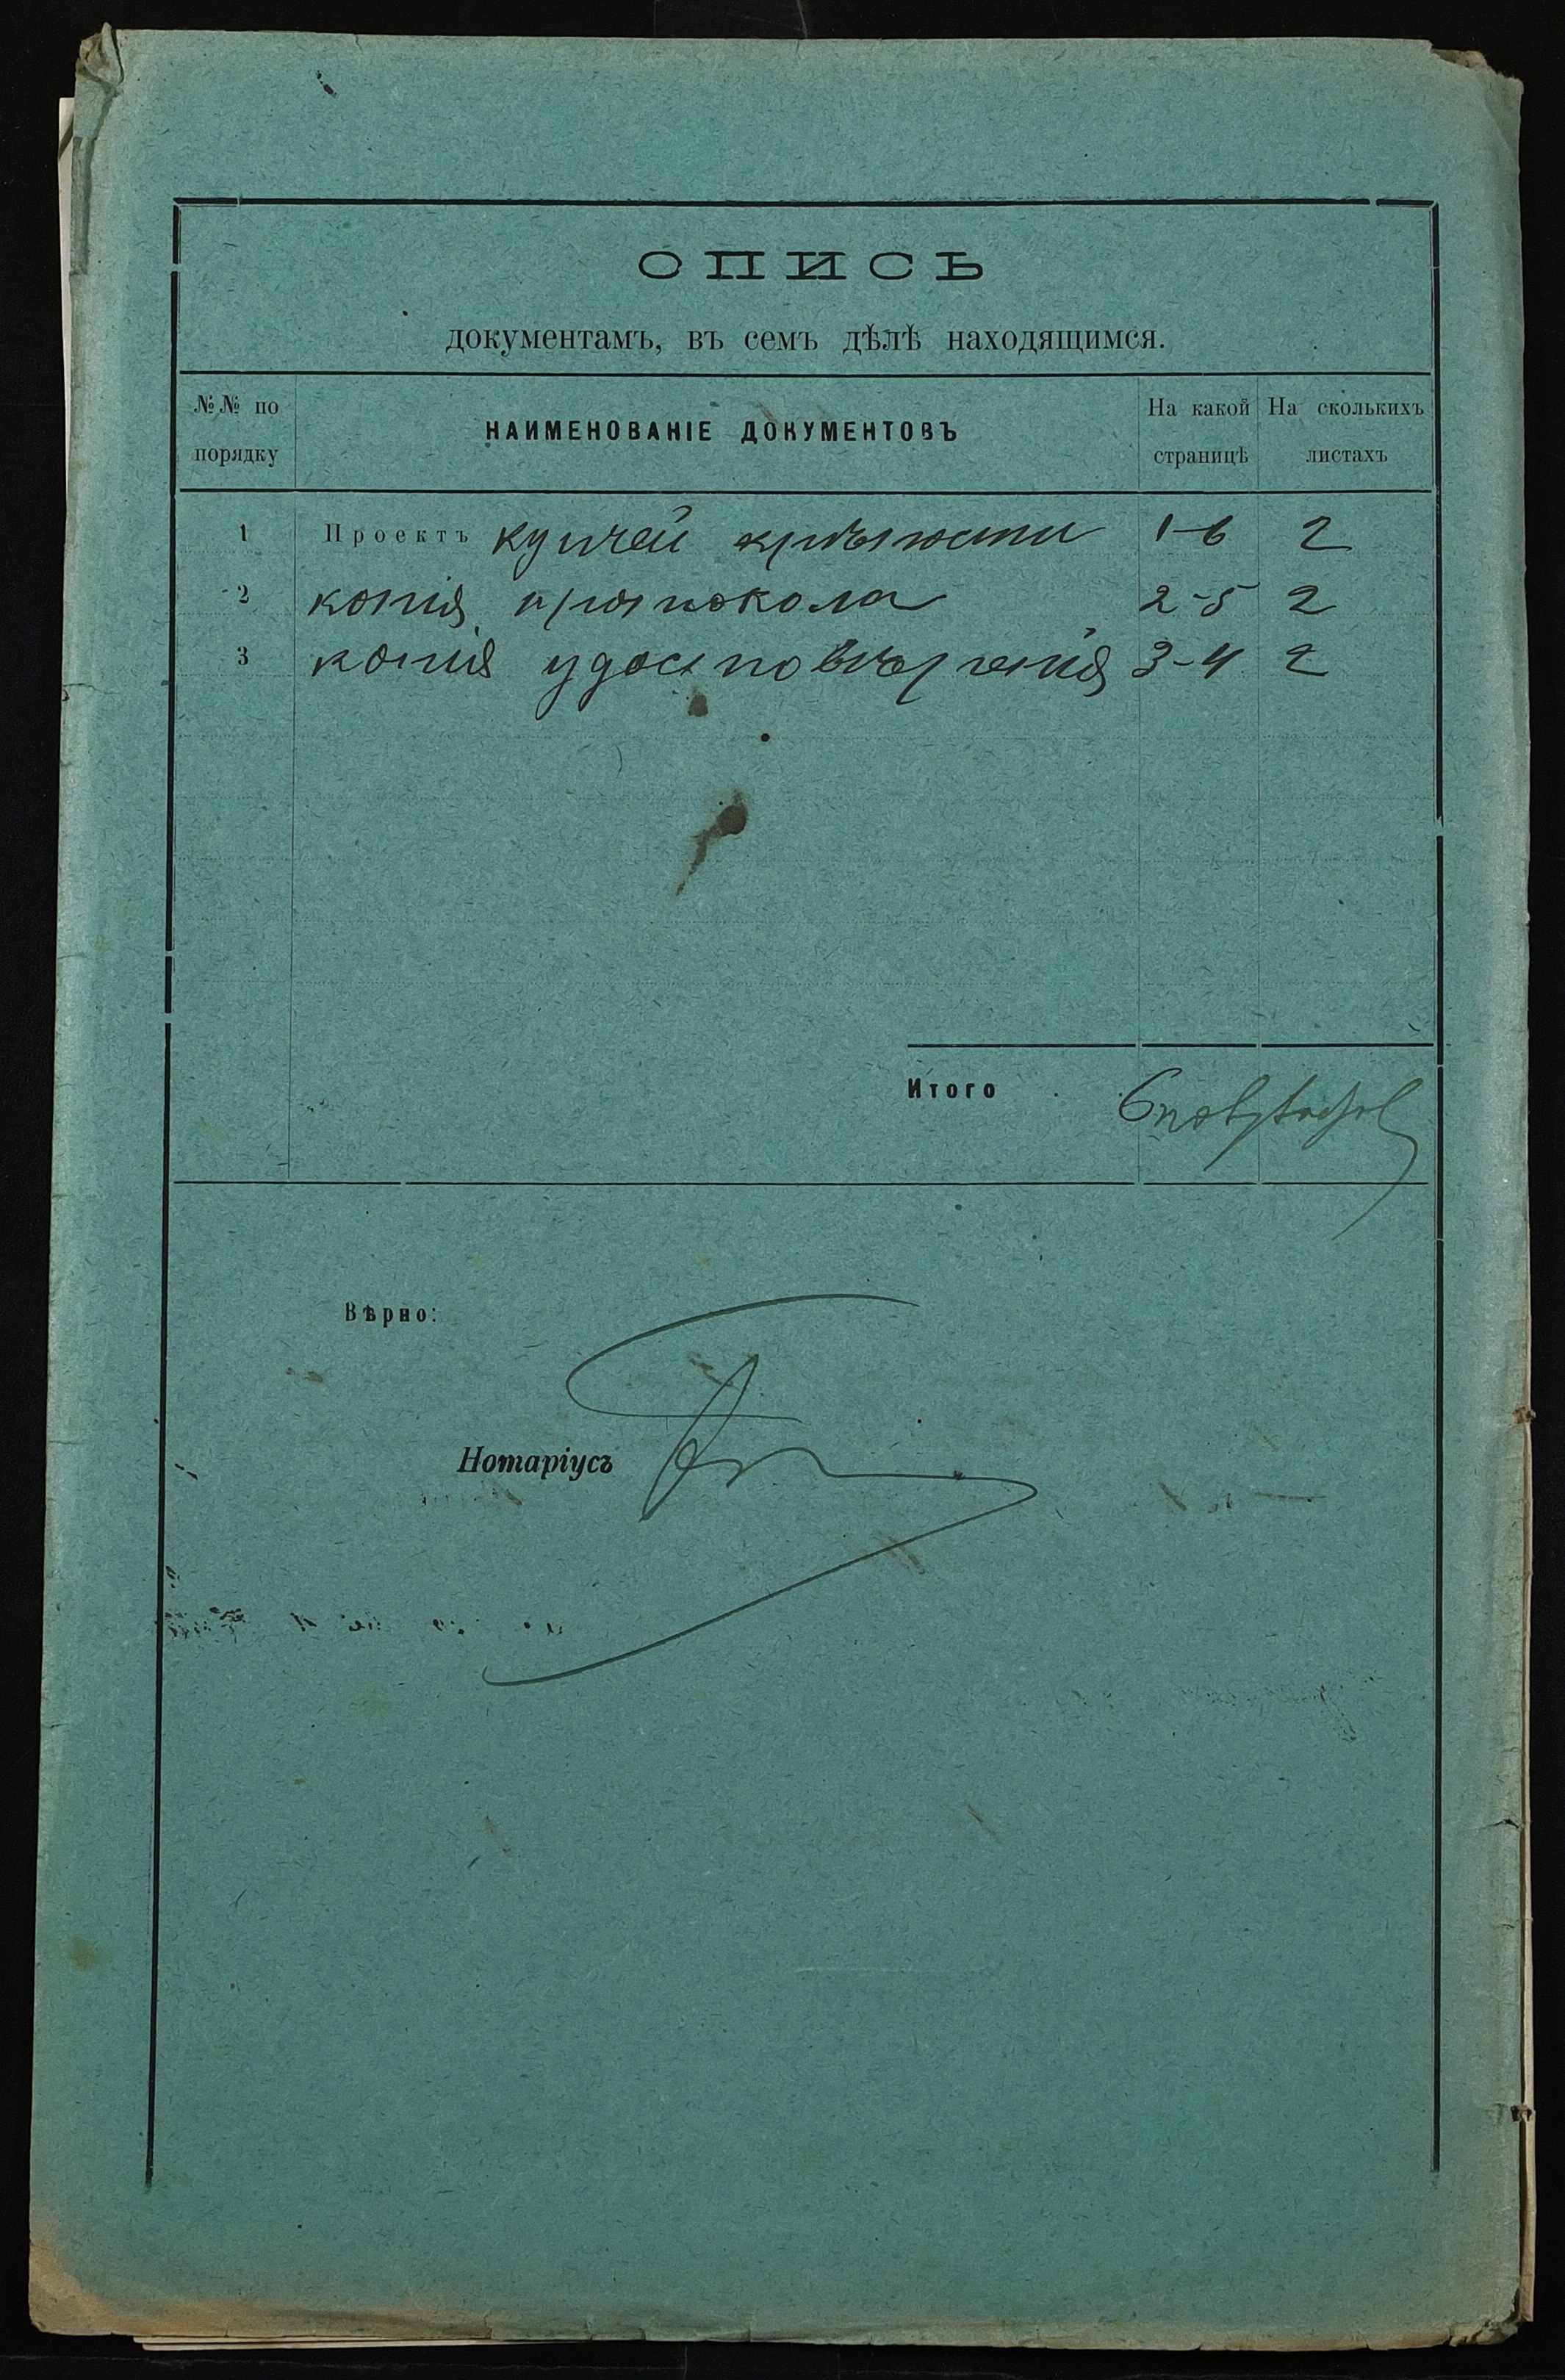 ОПИСЬ
документамъ, въ семъ дѣлѣ находящимся.
№№ по порядку НАИМЕНОВАНІЕ ДОКУМЕНТОВЪ На какой страницѣ На сколькихъ листахъ
1 Проектъ купчей крѣпости 1-6 2
2 копія протокола 2-5 2
3 копія удостовѣренія 3-4 2
Итого
Вѣрно:
Нотаріусъ